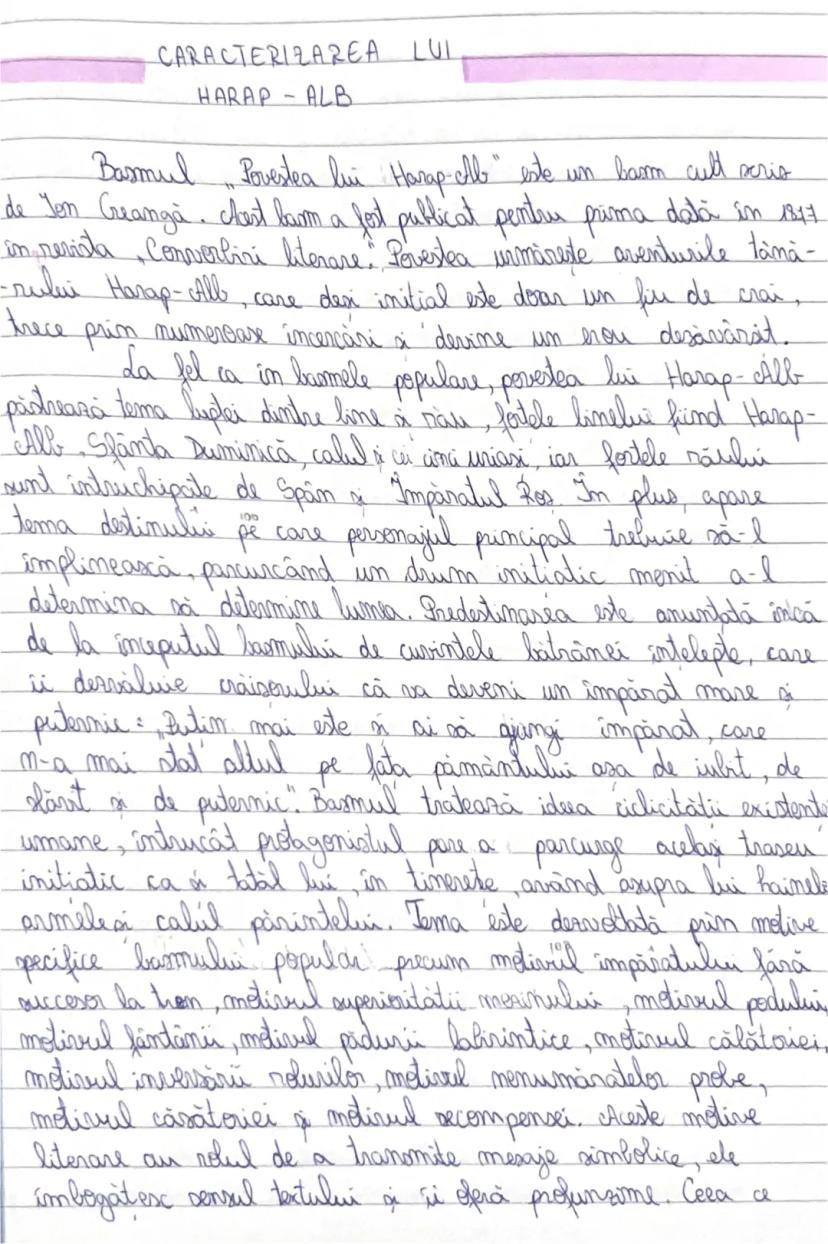 CARACTERIZAREA LUI
HARAP - ALB
Basmul „Povestea lui Harap-Alb" este un basm cult scris
de Ion Creangă. Acest basm a fost publicat pentru prima dată în 1877
în revista „Convorbiri literare". Povestea urmărește aventurile tână-
-rului Harap-Alb, care deși inițial este doar un fiu de crai,
trece prin numeroase încercări și devine un erou desăvârșit.
La fel ca în basmele populare, povestea lui Harap-Alb
păstrează tema luptei dintre bine și rău, forțele binelui fiind Harap-
Alb, Sfânta Duminică, calul și cei cinci uriași, iar forțele răului
sunt întruchipate de Spân și Împăratul Roș. În plus, apare
tema destinului pe care personajul principal trebuie să-l
împlinească, parcurcând un drum inițiatic menit a-l
determina să determine lumea. Predestinarea este anunțată încă
de la începutul basmului de cuvintele bătrânei înțelepte, care
îi dezvăluie crăișorului că va deveni un împărat mare și
puternic: „Puțin mai este și ai să ajungi împărat, care
n-a mai stat altul pe fața pământului așa de iubit, de
slăvit și de puternic". Basmul tratează ideea ciclicității existenței
umane, întrucât protagonistul pare a parcurge același traseu
inițiatic ca și tatăl lui, în tinerețe, având asupra lui hainele
armele și calul părintelui. Tema este dezvoltată prin motive
specifice basmului popular precum motivul împăratului fără
succesor la tron, motivul superiorității mezinului, motivul podului,
motivul fântânii, motivul pădurii labirintice, motivul călătoriei,
motivul inversării rolurilor, motivul nenumăratelor probe,
motivul căsătoriei și motivul recompensei. Aceste motive
literare au rolul de a transmite mesaje simbolice, ele
îmbogățesc sensul textului și îi oferă profunzime. Ceea ce